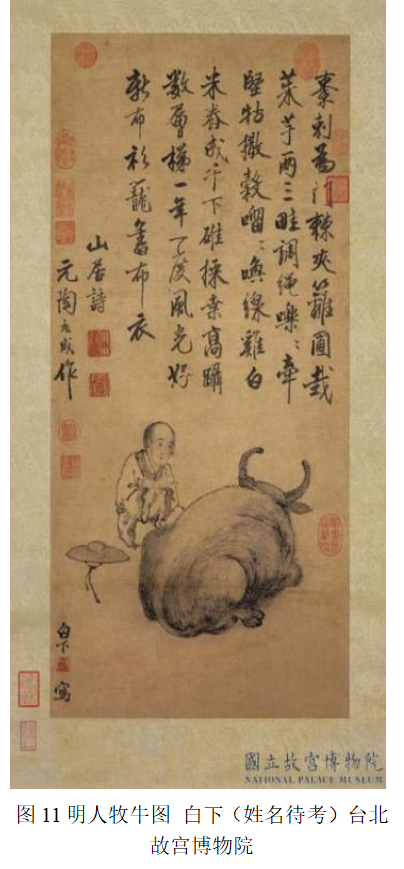 棗刺為門棘夾籬圃栽
菜芋兩三畦調繩牽
堅牯撒穀喚線雞白
米舂成千下碓採桑高躡
數層梯一年了風光好
新布衫籠舊布衣
山居詩
元陶九成作
白下
寫
國立故宮博物院
NATIONAL PALACE MUSEUM
图 11 明人牧牛图 白下（姓名待考）台北
故宫博物院